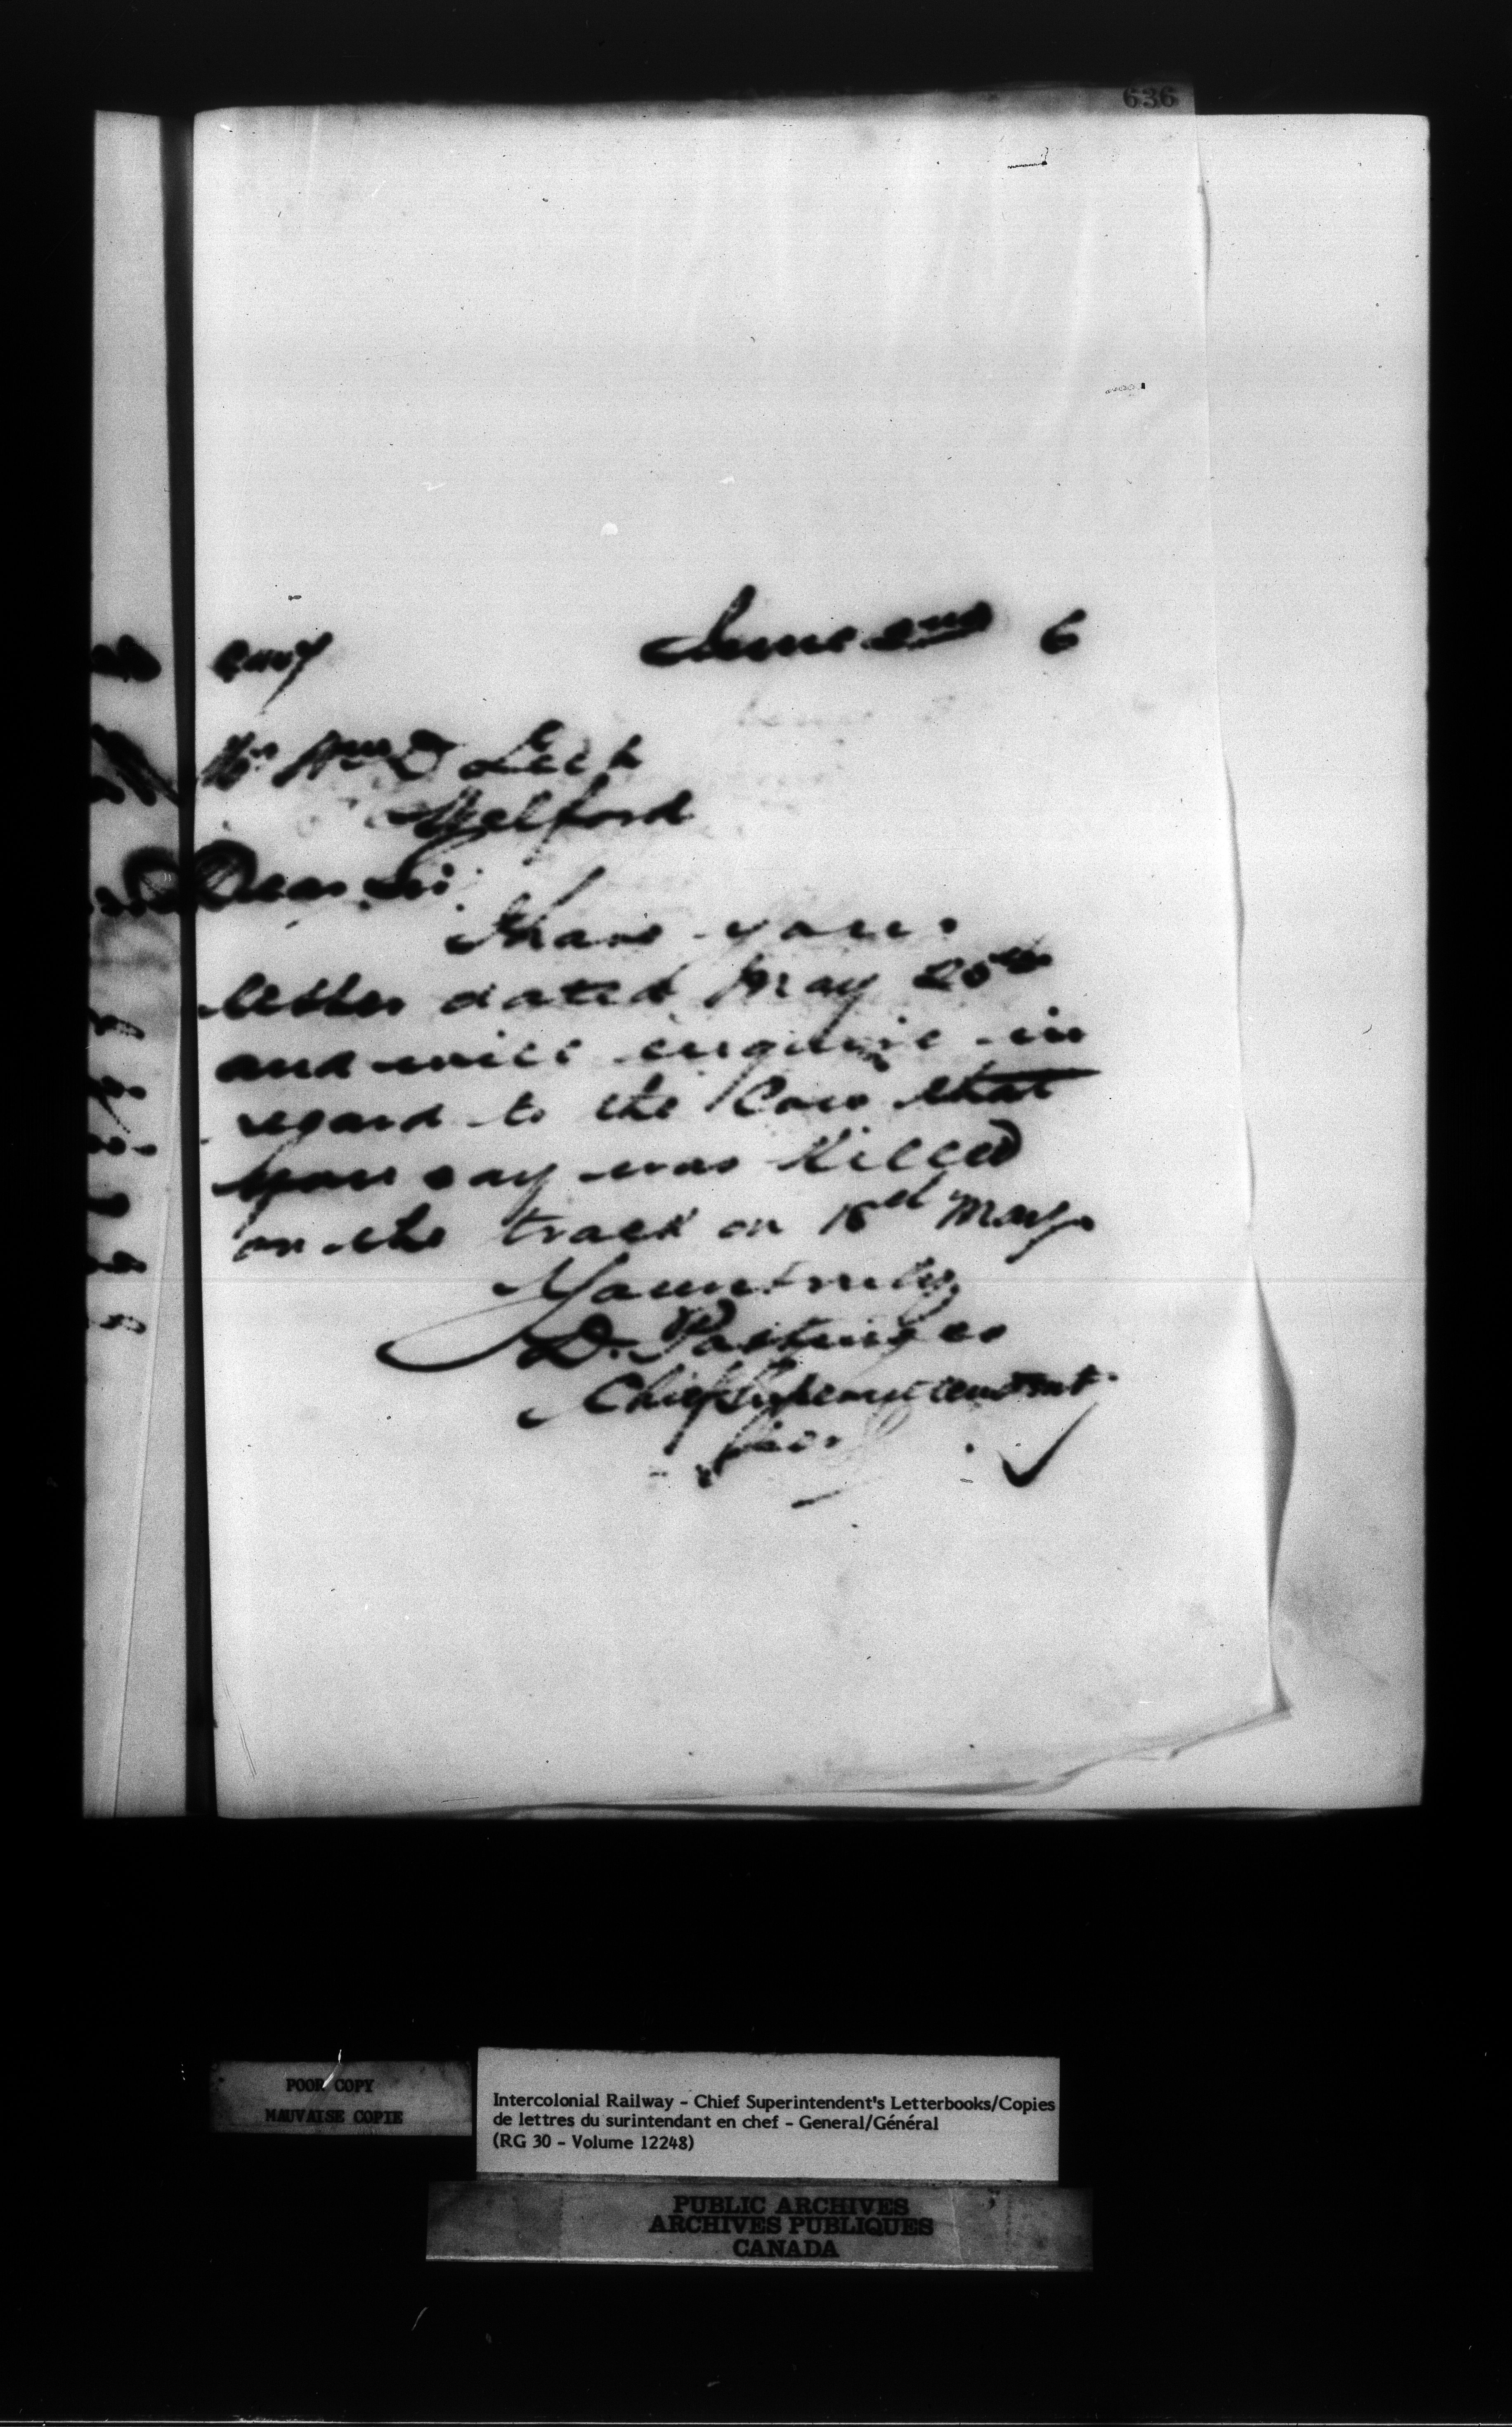 636
June 2nd 6
Mr Wm D
Melford
Dear Sir
I have your
letter dated May 25th
and will enquire in
regard to the Cow that
you say was Killed
on the track on 18th May.
Yours truly
D. Pottinger
Chief Superintendent
POOR COPY
MAUVAISE COPIE
Intercolonial Railway - Chief Superintendent's Letterbooks/Copies
de lettres du surintendant en chef - General/Général
(RG 30 - Volume 12248)
PUBLIC ARCHIVES
ARCHIVES PUBLIQUES
CANADA